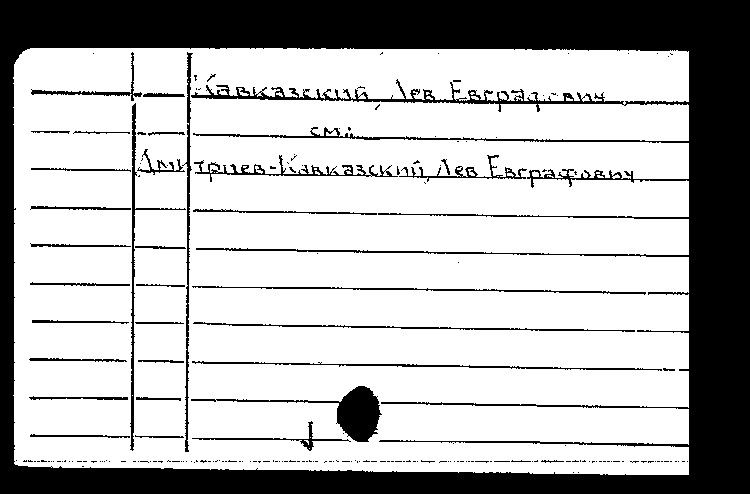 Кавказский, Лев Евграфович
см.:
Дмитриев-Кавказский, Лев Евграфович